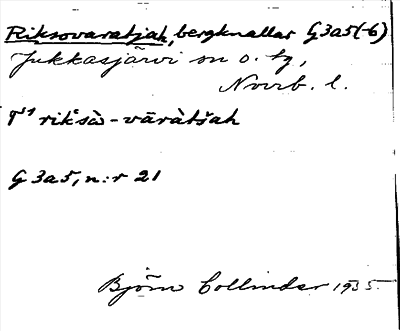 Riksovaratjah, bergknallar G3a5(-6)
Jukkasjärvi sn o. tg,
Norrb. l.
riksò-vāràtšah
G 3a5, n:r 21
Björn Collinder 1935.